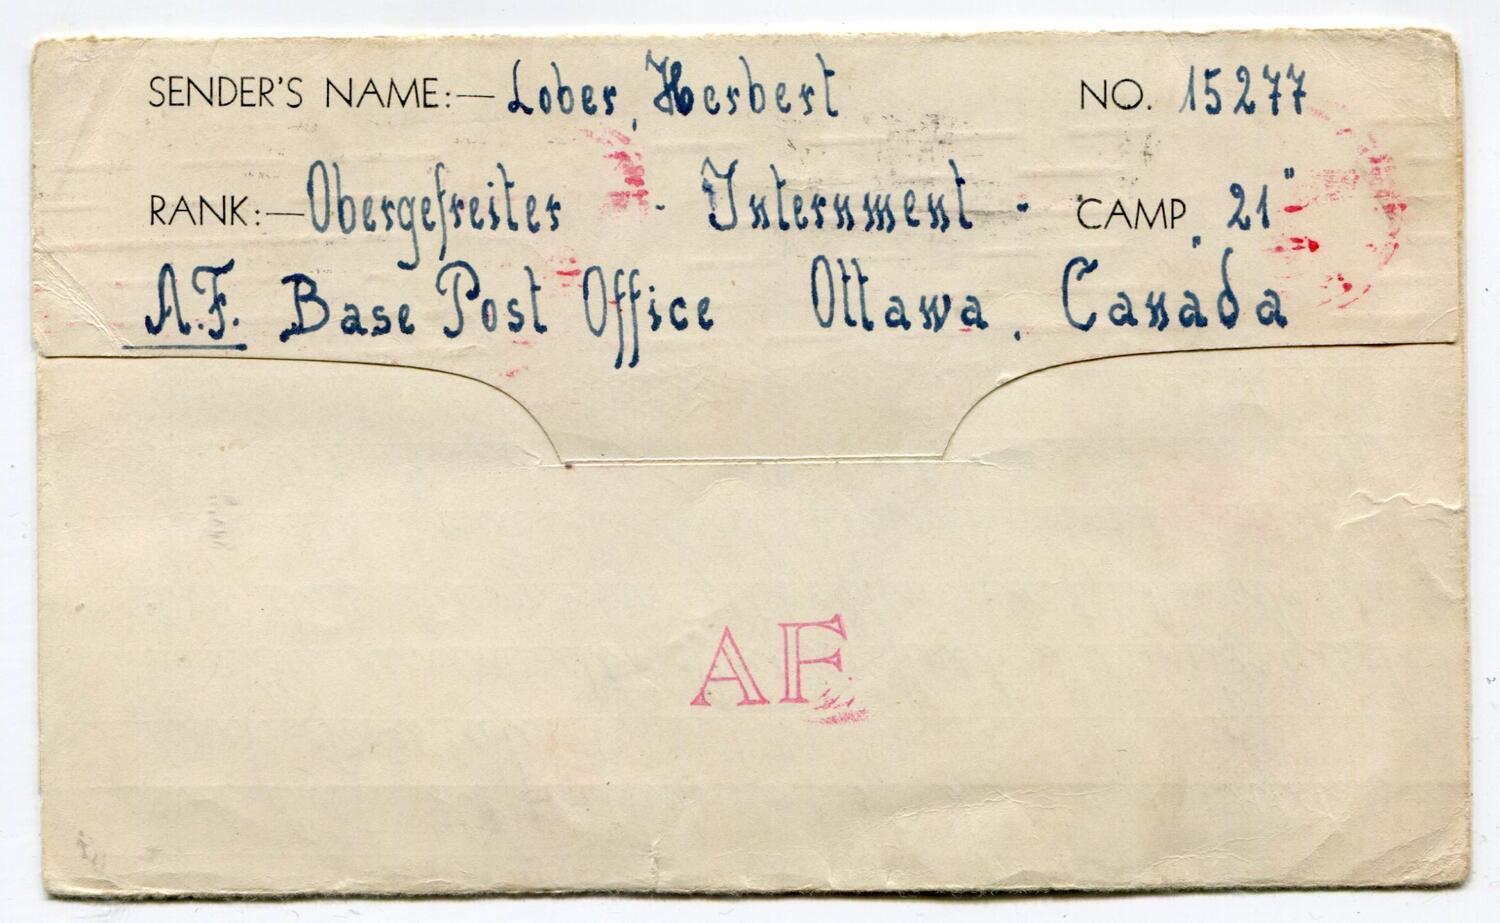 SENDER'S NAME:— Lober, Herbert NO. 15277
RANK:— Obergefreiter - Internment - CAMP 21"
A.F. Base Post Office Ottawa, Canada
AF